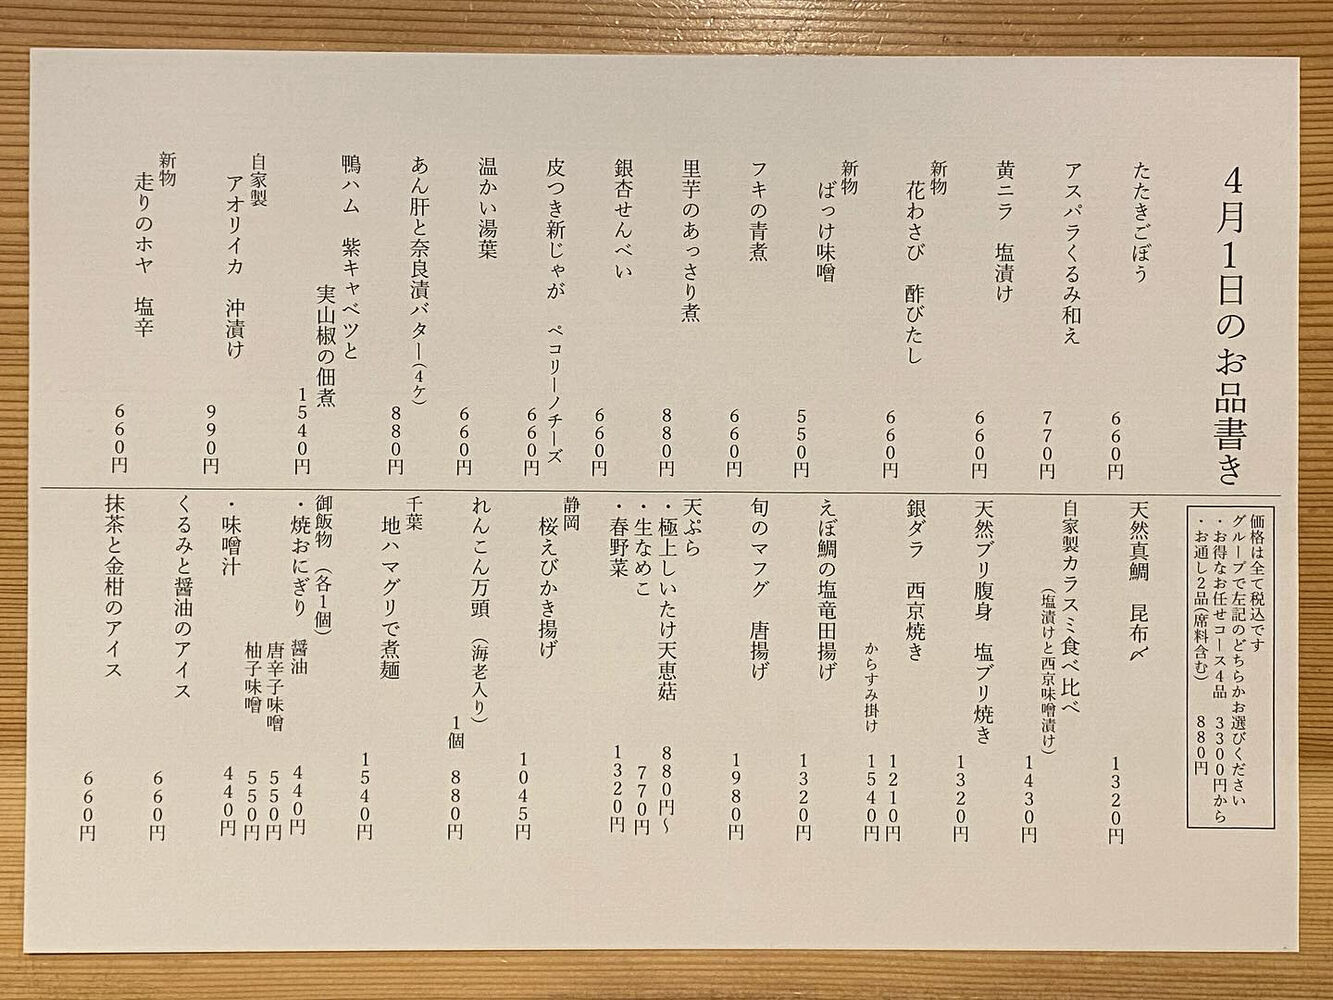 4月1日のお品書き
たたきごぼう 660円
アスパラくるみ和え 770円
黄ニラ 塩漬け 660円
新物
花わさび 酢びたし 660円
新物
ばっけ味噌 550円
フキの青煮 660円
里芋のあっさり煮 880円
銀杏せんべい 660円
皮つき新じゃが ペコリーノチーズ 660円
温かい湯葉 660円
あん肝と奈良漬バター(4ケ) 880円
鴨ハム 紫キャベツと
実山椒の佃煮 1540円
自家製
アオリイカ 沖漬け 990円
新物
走りのホヤ 塩辛 660円
価格は全て税込です
グループで左記のどちらかお選びください
・お得なお任せコース4品 3300円から
・お通し2品(席料含む) 880円
天然真鯛 昆布〆 1320円
自家製カラスミ食べ比べ
(塩漬けと西京味噌漬け) 1430円
天然ブリ腹身 塩ブリ焼き 1320円
銀ダラ 西京焼き 1210円
からすみ掛け 1540円
えぼ鯛の塩竜田揚げ 1320円
旬のマフグ 唐揚げ 1980円
天ぷら
・極上しいたけ天恵菇 880円〜
・生なめこ 770円
・春野菜 1320円
静岡
桜えびかき揚げ 1045円
れんこん万頭 (海老入り)
1個 880円
千葉
地ハマグリで煮麺 1540円
御飯物 (各1個)
・焼おにぎり 醤油 440円
唐辛子味噌 550円
柚子味噌 550円
・味噌汁 440円
くるみと醤油のアイス 660円
抹茶と金柑のアイス 660円